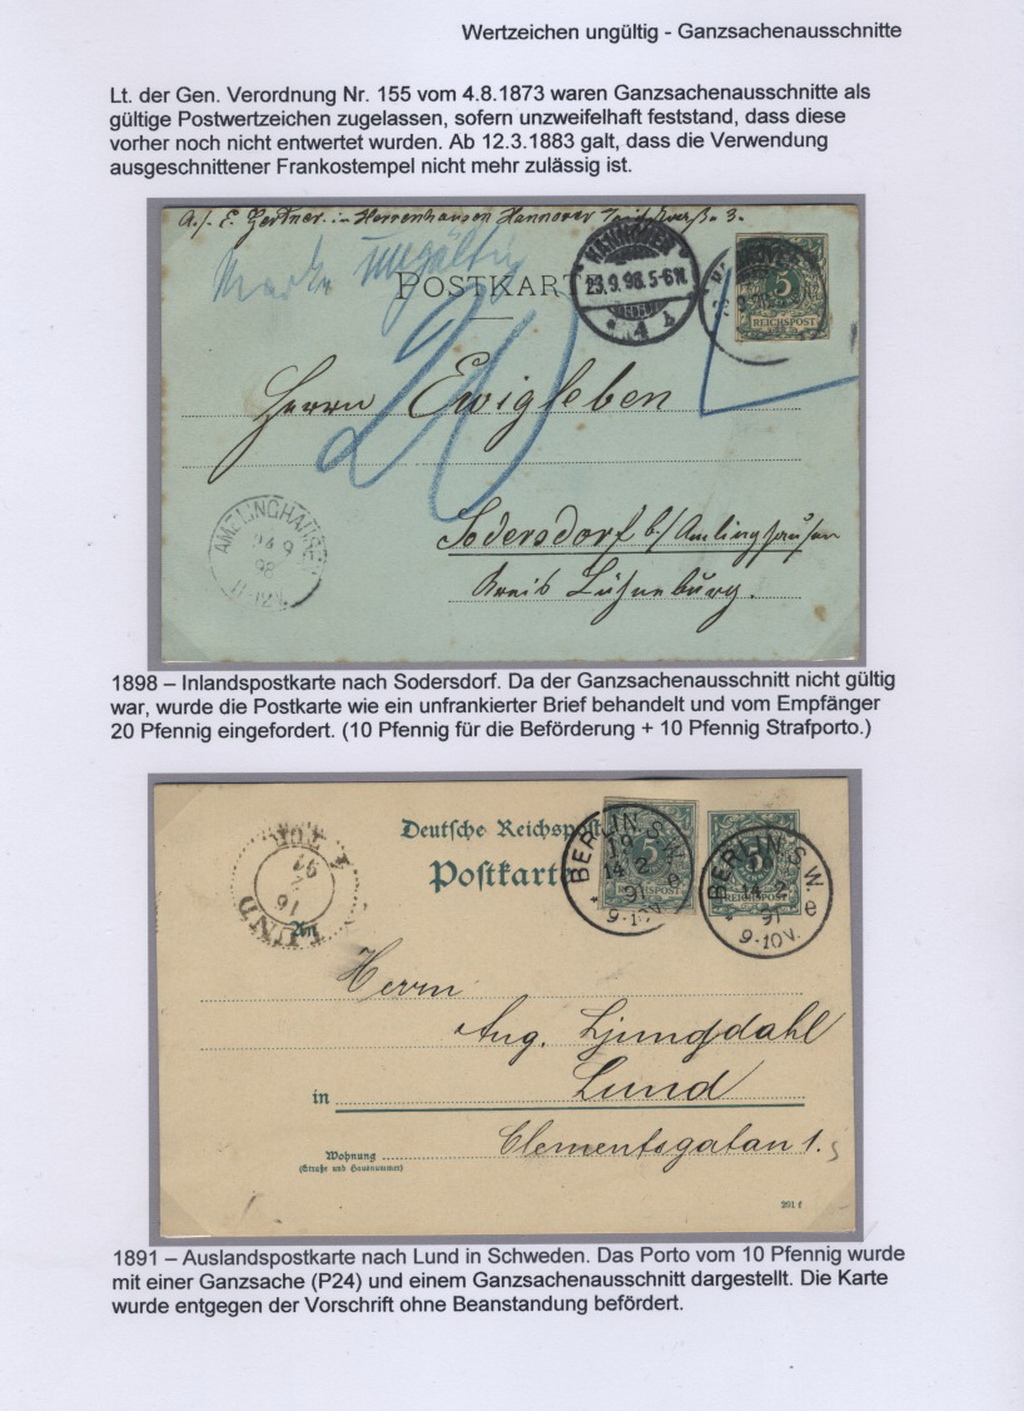 Wertzeichen ungültig - Ganzsachenausschnitte
Lt. der Gen. Verordnung Nr. 155 vom 4.8.1873 waren Ganzsachenausschnitte als
gültige Postwertzeichen zugelassen, sofern unzweifelhaft feststand, dass diese
vorher noch nicht entwertet wurden. Ab 12.3.1883 galt, dass die Verwendung
ausgeschnittener Frankostempel nicht mehr zulässig ist.
E. in Herrenhausen Hannover 3.
Marke ungültig
POSTKART
HANNOVER
23.9.98.5-6N.
4 b
5
REICHSPOST
20
Herrn Ewigleben
AMELINGHAUSEN
24 9
98
11-12V.
Sodersdorf b/ Amlinghausen
Kreis Lühneburg.
1898 – Inlandspostkarte nach Sodersdorf. Da der Ganzsachenausschnitt nicht gültig
war, wurde die Postkarte wie ein unfrankierter Brief behandelt und vom Empfänger
20 Pfennig eingefordert. (10 Pfennig für die Beförderung + 10 Pfennig Strafporto.)
Deutsche Reichspost
Postkarte
BERLIN S.W.
19
14 2
91 e
9-10V.
5
REICHSPOST
BERLIN S.W.
14 2
91 e
9-10V.
5
REICHSPOST
LUND
16
2
91
An
Herrn
Aug. Ljungdahl
in Lund
Clementsgatan 1.
Wohnung
(Straße und Hausnummer)
291 f
1891 – Auslandspostkarte nach Lund in Schweden. Das Porto vom 10 Pfennig wurde
mit einer Ganzsache (P24) und einem Ganzsachenausschnitt dargestellt. Die Karte
wurde entgegen der Vorschrift ohne Beanstandung befördert.